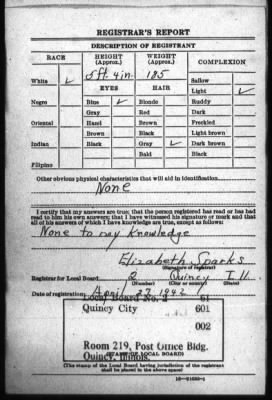 REGISTRAR'S REPORT
DESCRIPTION OF REGISTRANT
RACE HEIGHT (Approx.) WEIGHT (Approx.) COMPLEXION
5 ft 4 in. 185 Sallow
White ✓ EYES HAIR Light ✓
Negro Blue ✓ Blonde Ruddy
Gray Red Dark
Oriental Hazel Brown Freckled
Brown Black Light brown
Indian Black Gray ✓ Dark brown
Bald Black
Filipino
Other obvious physical characteristics that will aid in identification
None
I certify that my answers are true; that the person registered has read or has had
read to him his own answers; that I have witnessed his signature or mark and that
all of his answers of which I have knowledge are true, except as follows:
None to my knowledge
Elizabeth Sparks
(Signature of registrar)
Registrar for Local Board 2 Quincy Ill.
(Number) (City or county)
Date of registration April 27 1942
Local Board No. 2 61
Quincy City 601
002
Room 219, Post Office Bldg.
Quincy, Illinois.
(STAMP OF LOCAL BOARD)
(The stamp of the Local Board having jurisdiction of the registrant
shall be placed in the above space)